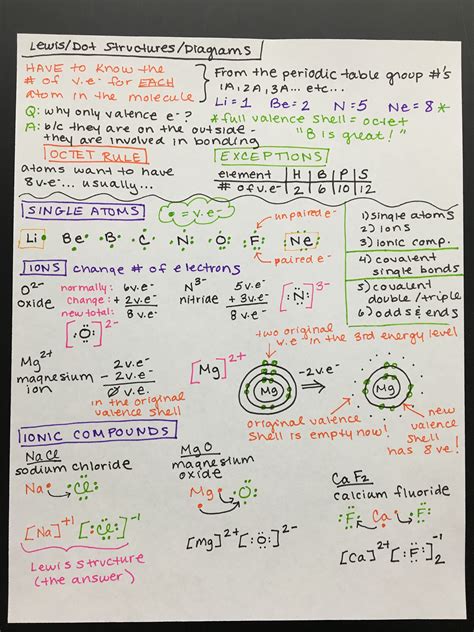 Lewis/Dot Structures/Diagrams
HAVE to know the
# of v.e⁻ for EACH
atom in the molecule
From the periodic table group #'s
1A, 2A, 3A... etc...
Li=1 Be=2 N=5 Ne=8*
Q: why only valence e⁻?
*full valence shell = octet
A: b/c they are on the outside -
they are involved in bonding
"8 is great!"
OCTET RULE
atoms want to have
8v.e⁻... usually...
EXCEPTIONS
element H B P S
# of v.e⁻ 2 6 10 12
SINGLE ATOMS
• = v.e⁻
unpaired e⁻
Li Be B C N O F Ne
paired e⁻
1) single atoms
2) ions
3) ionic comp.
4) covalent
single bonds
5) covalent
double/triple
6) odds & ends
IONS change # of electrons
O²⁻
oxide
normally: 6v.e⁻
change: + 2v.e⁻
new total: 8v.e⁻
[:Ö:]²⁻
N³⁻
nitride
5v.e⁻
+ 3v.e⁻
8v.e⁻
[:N:]³⁻
two original
v.e⁻ in the 3rd energy level
Mg²⁺
magnesium
ion
2v.e⁻
- 2v.e⁻
0 v.e⁻
in the original
valence shell
[Mg]²⁺
Mg
-2v.e⁻
Mg
original valence
shell is empty now!
new
valence
shell
has 8 ve!
IONIC COMPOUNDS
NaCl
sodium chloride
Na Cl
[Na]⁺¹ [:Cl:]⁻¹
Lewis structure
(the answer)
MgO
magnesium
oxide
Mg O
[Mg]²⁺ [:O:]²⁻
CaF₂
calcium fluoride
F Ca F
[Ca]²⁺ [:F:]₂⁻¹